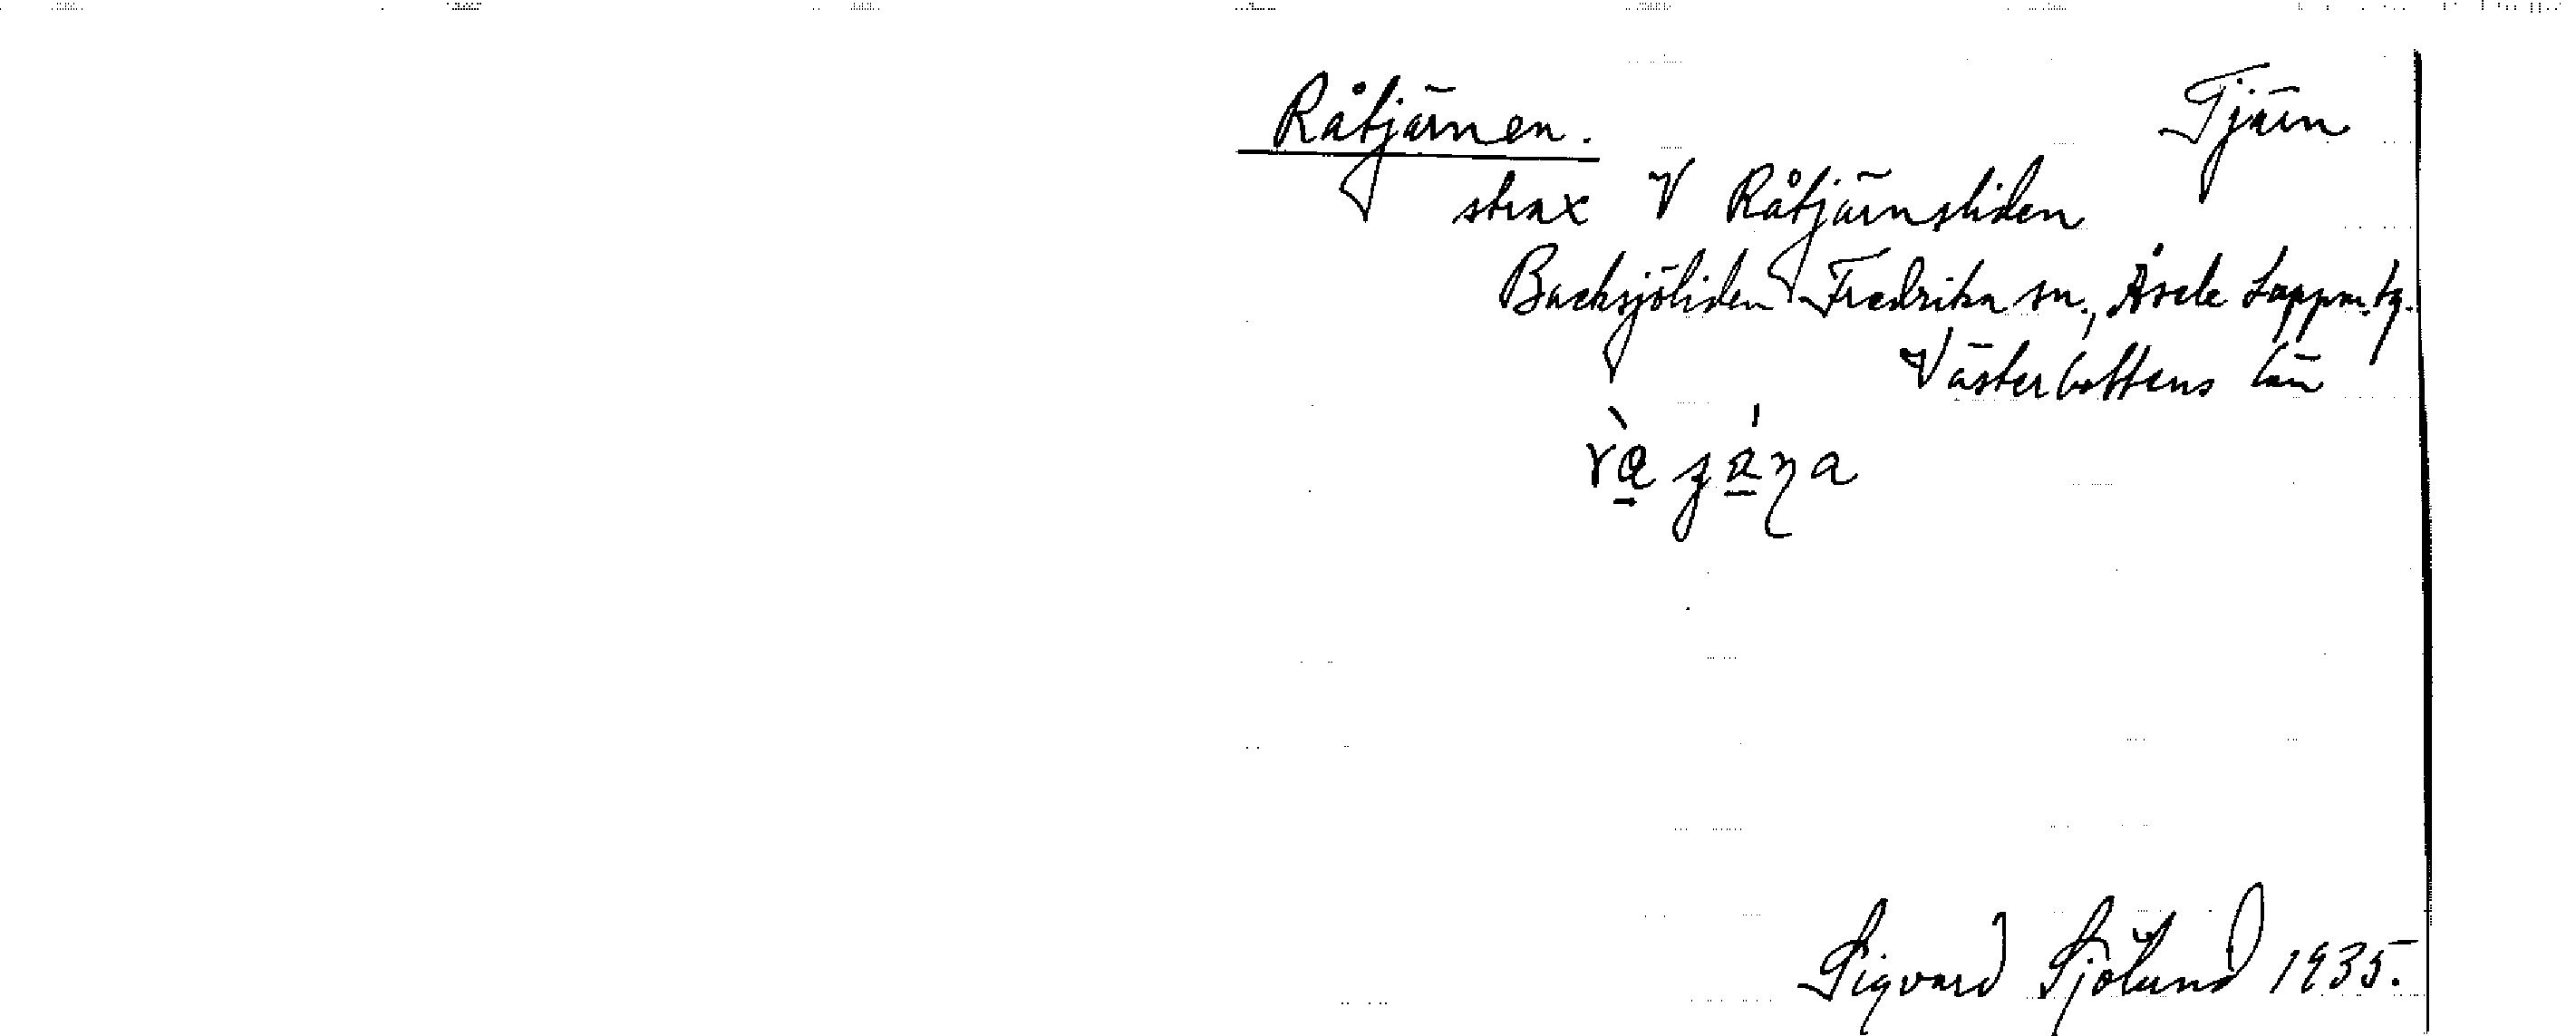 Råtjärnen. Tjärn
strax V Råtjärnsliden
Backsjöliden Fredrika sn., Åsele Lappm. tg.
Västerbottens län
Sigvard Sjölund 1935.